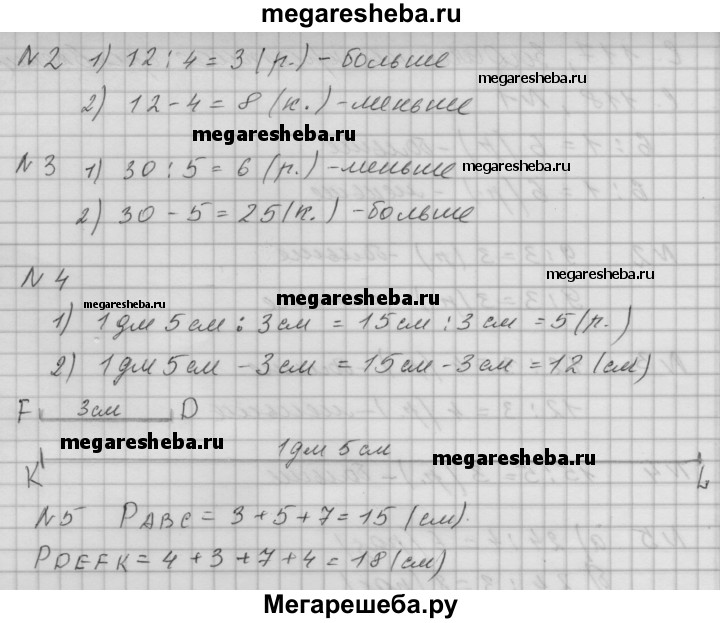 megaresheba.ru
N2 1) 12 : 4 = 3 (р.) - больше
megaresheba.ru
2) 12 - 4 = 8 (к.) - меньше
megaresheba.ru
N3 1) 30 : 5 = 6 (р.) - меньше
megaresheba.ru
2) 30 - 5 = 25 (к.) - больше
N4
megaresheba.ru
megaresheba.ru
megaresheba.ru
1) 1 дм 5 см : 3 см = 15 см : 3 см = 5 (р.)
2) 1 дм 5 см - 3 см = 15 см - 3 см = 12 (см)
F 3 см D
megaresheba.ru
1 дм 5 см
megaresheba.ru
K L
N5 PABC = 3 + 5 + 7 = 15 (см).
PDEFK = 4 + 3 + 7 + 4 = 18 (см)
Мегарешеба.ру